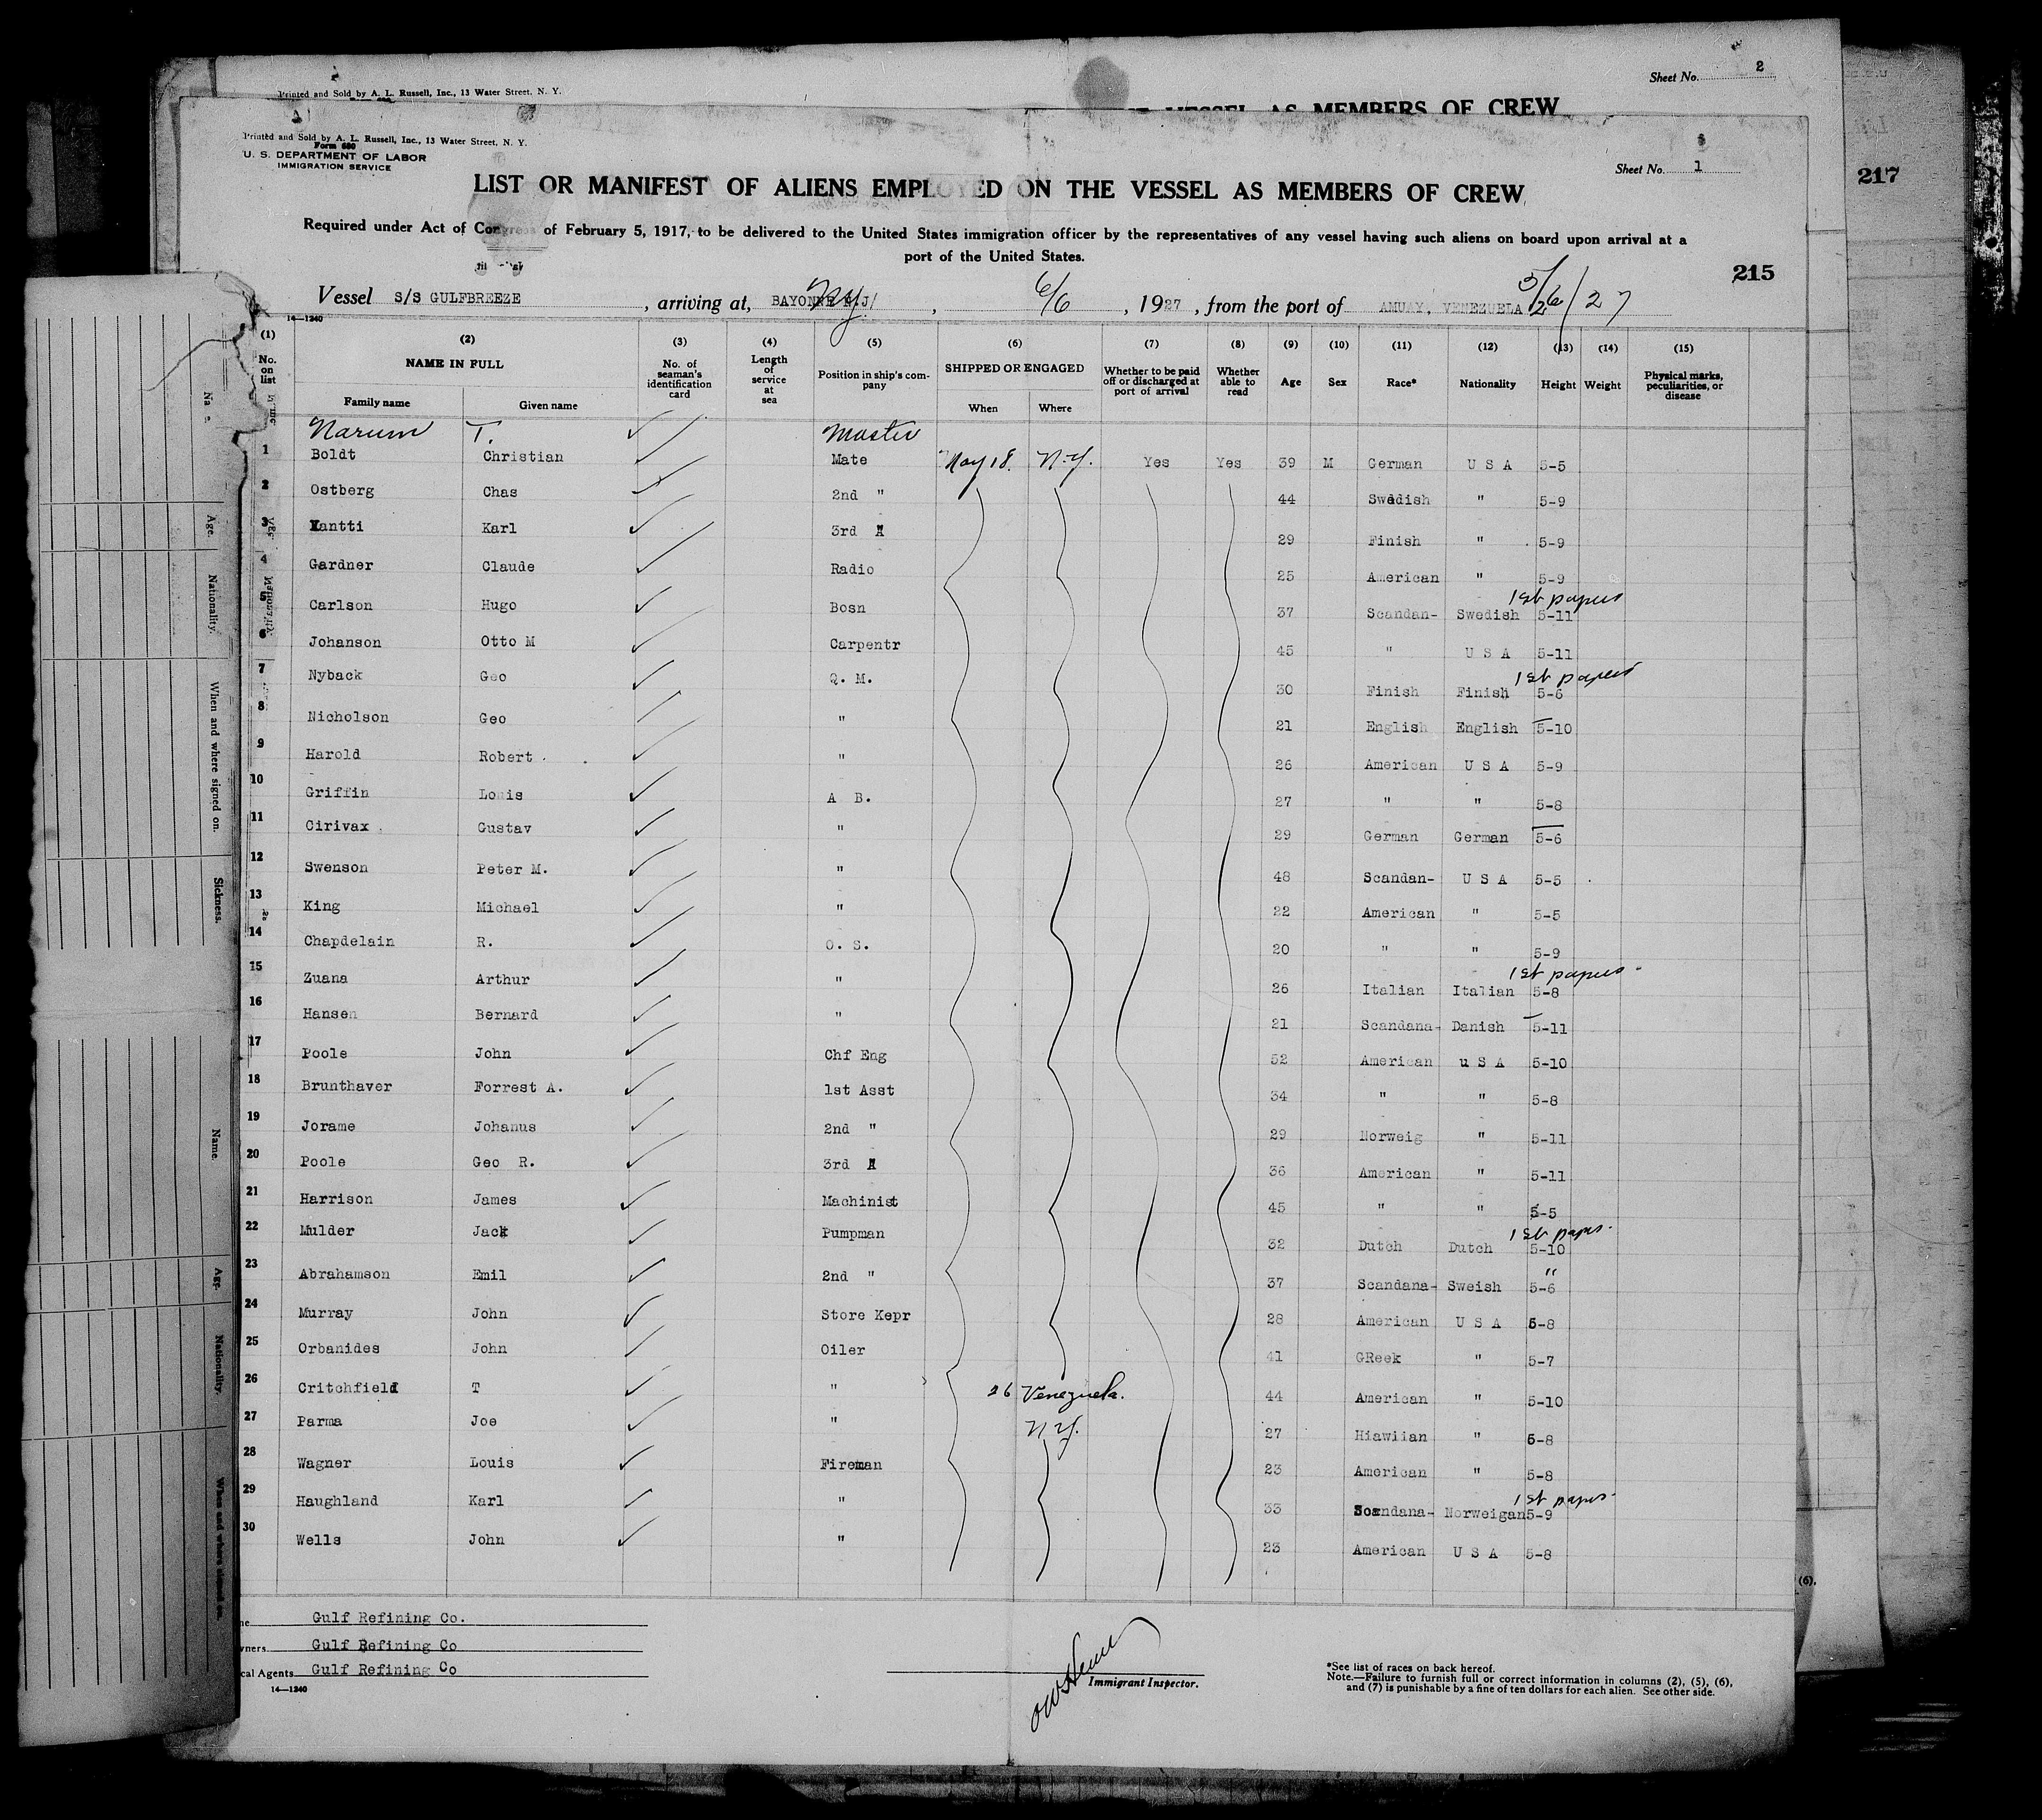 Sheet No. 2
Printed and Sold by A. L. Russell, Inc., 13 Water Street, N. Y.
VESSEL AS MEMBERS OF CREW
Printed and Sold by A. L. Russell, Inc., 13 Water Street, N. Y.
Form 680
U. S. DEPARTMENT OF LABOR
IMMIGRATION SERVICE
Sheet No. 1
217
LIST OR MANIFEST OF ALIENS EMPLOYED ON THE VESSEL AS MEMBERS OF CREW
Required under Act of Congress of February 5, 1917, to be delivered to the United States immigration officer by the representatives of any vessel having such aliens on board upon arrival at a
port of the United States.
215
Vessel S/S GULFBREEZE, arriving at, BAYONNE N.J/ N.Y., 6/6, 1927, from the port of AMUAY, VENEZUELA 5/26/27
14—1240
(1) (2) (3) (4) (5) (6) (7) (8) (9) (10) (11) (12) (13) (14) (15)
No. on list NAME IN FULL Family name Given name No. of seaman's identification card Length of service at sea Position in ship's company SHIPPED OR ENGAGED When Where Whether to be paid off or discharged at port of arrival Whether able to read Age Sex Race* Nationality Height Weight Physical marks, peculiarities, or disease
Narum T. Master
1 Boldt Christian Mate May 18. N.Y. Yes Yes 39 M German U S A 5-5
2 Ostberg Chas 2nd " 44 Swedish " 5-9
3 Xantti Karl 3rd " 29 Finish " 5-9
4 Gardner Claude Radio 25 American " 5-9
5 Carlson Hugo Bosn 37 Scandan- Swedish 5-11 1st papers
6 Johanson Otto M Carpentr 45 " U S A 5-11
7 Nyback Geo Q. M. 30 Finish Finish 5-6 1st papers
8 Nicholson Geo " 21 English English 5-10
9 Harold Robert " 26 American U S A 5-9
10 Griffin Louis A B. 27 " " 5-8
11 Cirivax Gustav " 29 German German 5-6
12 Swenson Peter M. " 48 Scandan- U S A 5-5
13 King Michael " 22 American " 5-5
14 Chapdelain R. O. S. 20 " " 5-9
15 Zuana Arthur " 26 Italian Italian 5-8 1st papers
16 Hansen Bernard " 21 Scandana- Danish 5-11
17 Poole John Chf Eng 52 American u S A 5-10
18 Brunthaver Forrest A. 1st Asst 34 " " 5-8
19 Jorame Johanus 2nd " 29 Norweig " 5-11
20 Poole Geo R. 3rd " 36 American " 5-11
21 Harrison James Machinist 45 " " 5-5
22 Mulder Jack Pumpman 32 Dutch Dutch 5-10 1st papers
23 Abrahamson Emil 2nd " 37 Scandana- Sweish 5-6 "
24 Murray John Store Kepr 28 American U S A 5-8
25 Orbanides John Oiler 41 GReek " 5-7
26 Critchfield T " 26 Venezuela. 44 American " 5-10
27 Parma Joe " N.Y. 27 Hiawiian " 5-8
28 Wagner Louis Fireman 23 American " 5-8
29 Haughland Karl " 33 Scandana- Norweigan 5-9 1st papers
30 Wells John " 23 American U S A 5-8
Gulf Refining Co.
Gulf Refining Co
cal Agents Gulf Refining Co
14—1240
Immigrant Inspector.
*See list of races on back hereof.
Note.—Failure to furnish full or correct information in columns (2), (5), (6),
and (7) is punishable by a fine of ten dollars for each alien. See other side.
(6),
Age.
Nationality.
When and where signed on.
Sickness.
Name.
Age.
Nationality.
When and where signed on.